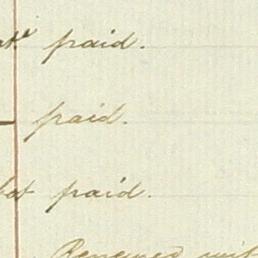 paid.
— paid.
paid.
Renewed with